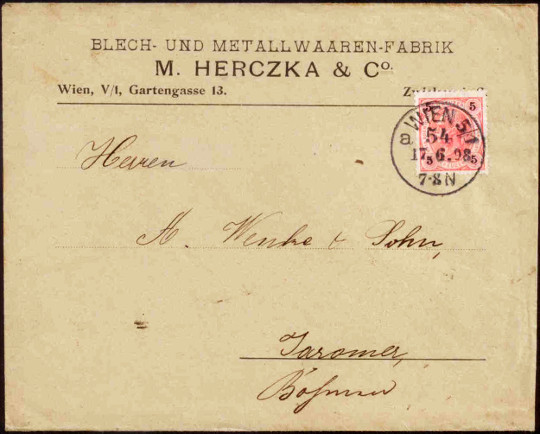 BLECH- UND METALLWAAREN-FABRIK
M. HERCZKA & Co.
Wien, V/1, Gartengasse 13.
5 5
WIEN 5/1
a 54
17 6. 98
7-8N
Herren
A. Wenke & Sohn,
Jaromer,
Böhmen